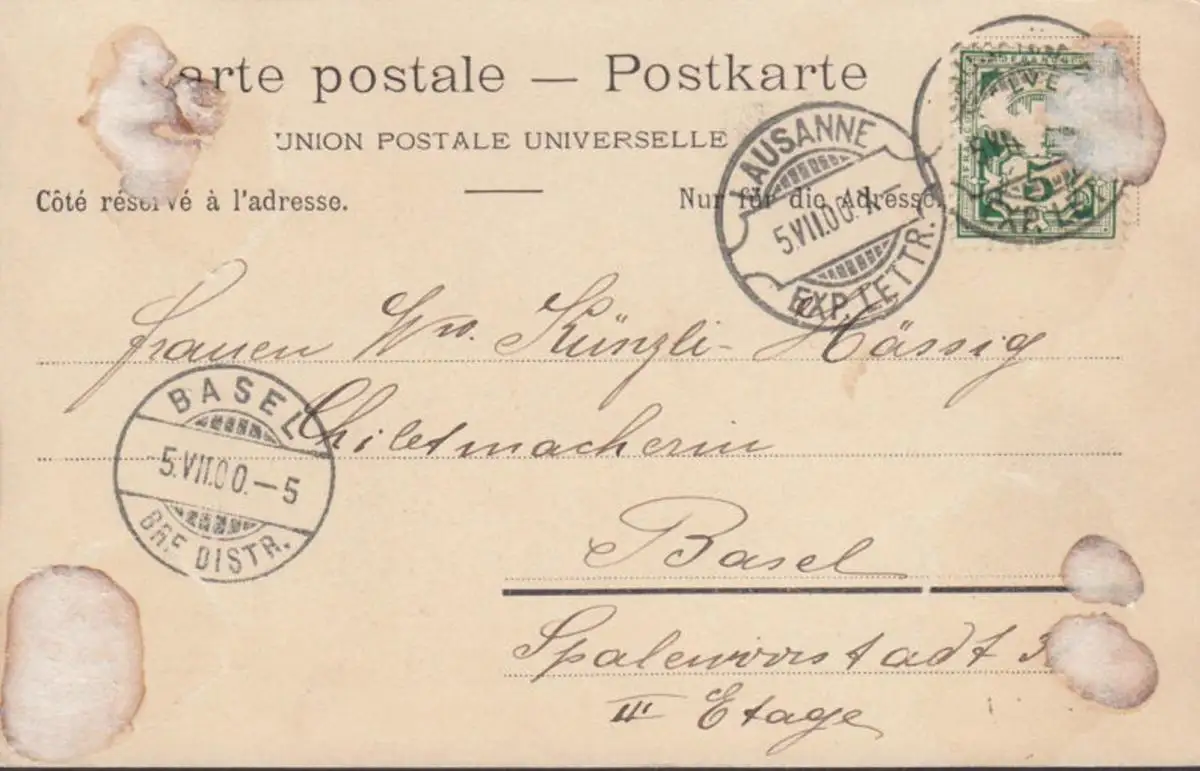 arte postale — Postkarte
UNION POSTALE UNIVERSELLE
Côté réservé à l'adresse.
Nur für die Adresse.
LAUSANNE
5.VII.00.
EXP. LETTR.
5
EXP. LET
Frauen Ww. Künzli-Hässig
BASEL
5.VII.00.–5
BRF. DISTR.
Giletmacherin
Basel
Spalenvorstadt 3
III Etage